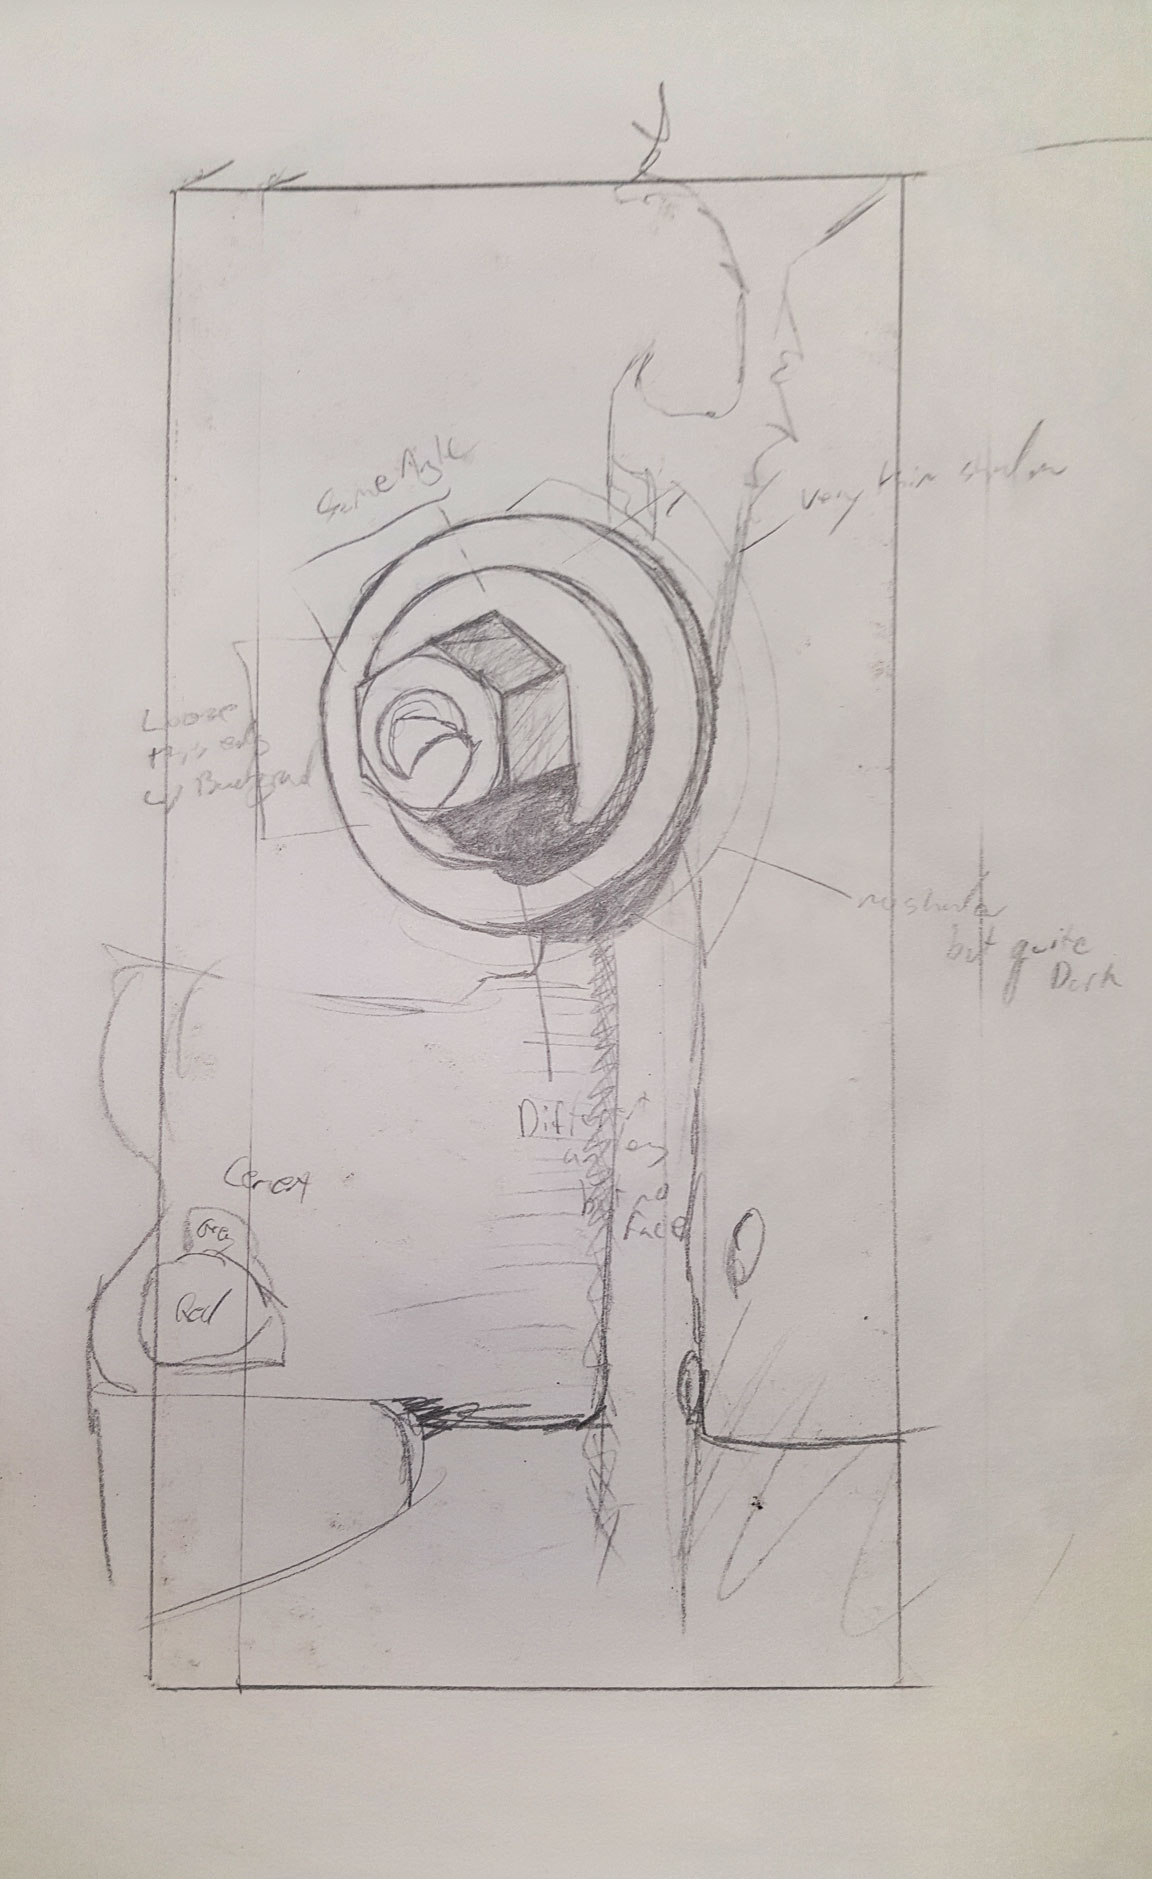 Same Angle
very thin shadow
Loose
this edge
w/ Background
no shadow
but quite
Dark
Different
angles
but no
Face
Cement
Red